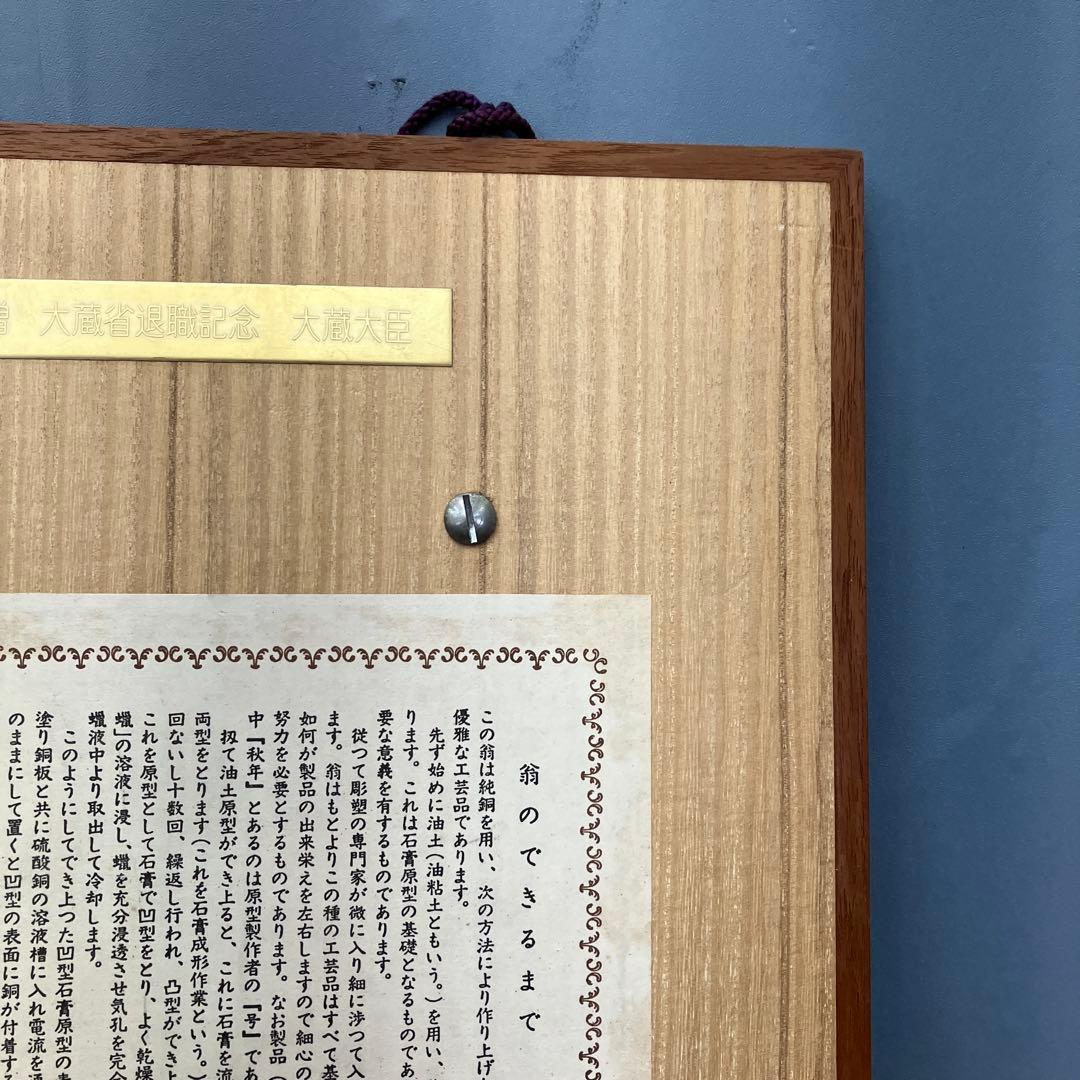 贈 大蔵省退職記念 大蔵大臣
翁のできるまで
この翁は純銅を用い、次の方法により作り上げ
優雅な工芸品であります。
先ず始めに油土(油粘土ともいう。)を用い、
ります。これは石膏原型の基礎となるものであ
要な意義を有するものであります。
従つて彫塑の専門家が微に入り細に渉つて入
ます。翁はもとよりこの種の工芸品はすべて基
如何が製品の出来栄えを左右しますので細心の
努力を必要とするものであります。なお製品(
中『秋年』とあるのは原型製作者の『号』であ
扨て油土原型ができ上ると、これに石膏を流
両型をとります(これを石膏成形作業という。)
回ないし十数回、繰返し行われ、凸型ができ上
これを原型として石膏で凹型をとり、よく乾燥
蠟」の溶液に浸し、蠟を充分浸透させ気孔を完全
蠟液中より取出して冷却します。
このようにしてでき上つた凹型石膏原型の表
塗り銅板と共に硫酸銅の溶液槽に入れ電流を通
のままにして置くと凹型の表面に銅が付着する